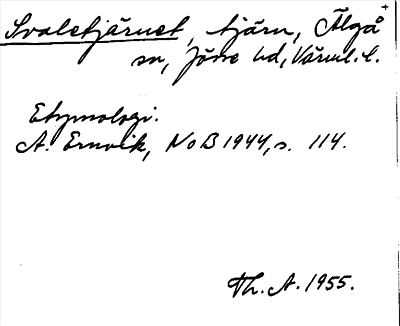 Svaletjärnet, tjärn, Älgå
sn, Jösse hd, Värml. l.
Etymologi.
A. Ernvik, NoB 1944, s. 114.
Th. A. 1955.